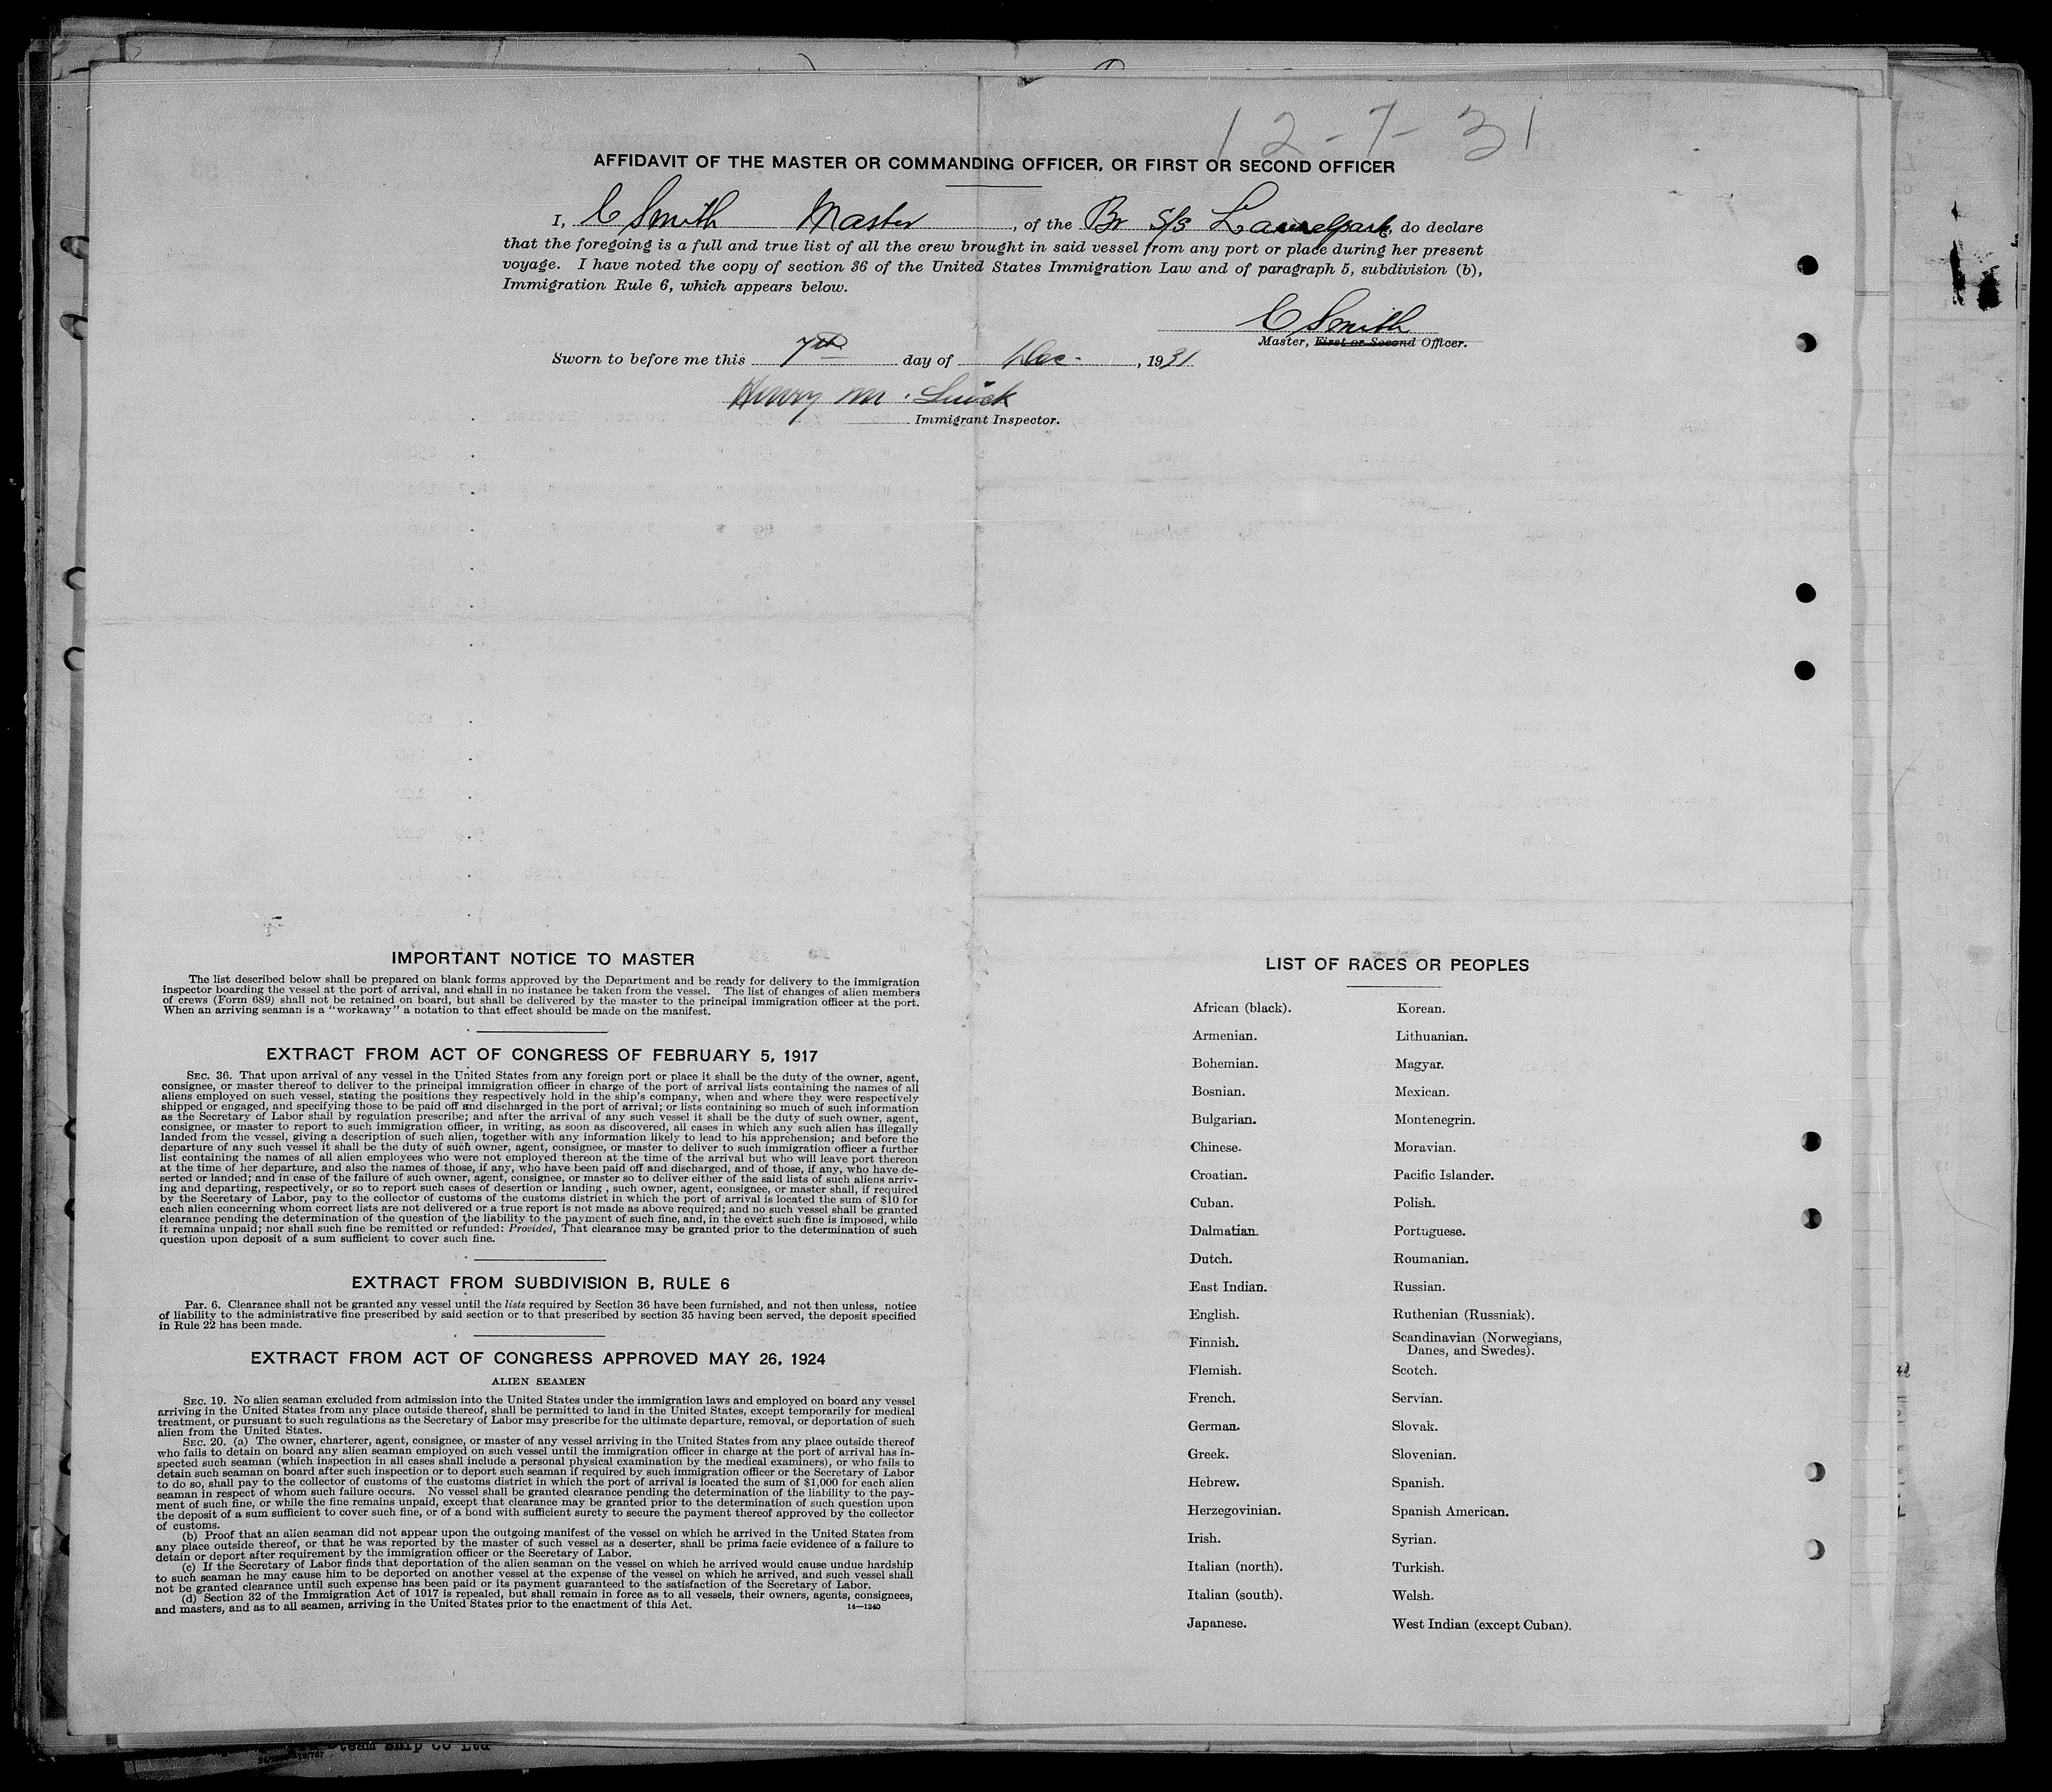 12-7-31
AFFIDAVIT OF THE MASTER OR COMMANDING OFFICER, OR FIRST OR SECOND OFFICER
I, C Smith Master, of the Br S/S Laurelpark, do declare
that the foregoing is a full and true list of all the crew brought in said vessel from any port or place during her present
voyage. I have noted the copy of section 36 of the United States Immigration Law and of paragraph 5, subdivision (b),
Immigration Rule 6, which appears below.
C Smith
Master, First or Second Officer.
Sworn to before me this 7th day of Dec., 1931
Henry M.
Immigrant Inspector.
IMPORTANT NOTICE TO MASTER
The list described below shall be prepared on blank forms approved by the Department and be ready for delivery to the immigration
inspector boarding the vessel at the port of arrival, and shall in no instance be taken from the vessel. The list of changes of alien members
of crews (Form 689) shall not be retained on board, but shall be delivered by the master to the principal immigration officer at the port.
When an arriving seaman is a "workaway" a notation to that effect should be made on the manifest.
EXTRACT FROM ACT OF CONGRESS OF FEBRUARY 5, 1917
SEC. 36. That upon arrival of any vessel in the United States from any foreign port or place it shall be the duty of the owner, agent,
consignee, or master thereof to deliver to the principal immigration officer in charge of the port of arrival lists containing the names of all
aliens employed on such vessel, stating the positions they respectively hold in the ship's company, when and where they were respectively
shipped or engaged, and specifying those to be paid off and discharged in the port of arrival; or lists containing so much of such information
as the Secretary of Labor shall by regulation prescribe; and after the arrival of any such vessel it shall be the duty of such owner, agent,
consignee, or master to report to such immigration officer, in writing, as soon as discovered, all cases in which any such alien has illegally
landed from the vessel, giving a description of such alien, together with any information likely to lead to his apprehension; and before the
departure of any such vessel it shall be the duty of such owner, agent, consignee, or master to deliver to such immigration officer a further
list containing the names of all alien employees who were not employed thereon at the time of the arrival but who will leave port thereon
at the time of her departure, and also the names of those, if any, who have been paid off and discharged, and of those, if any, who have de-
serted or landed; and in case of the failure of such owner, agent, consignee, or master so to deliver either of the said lists of such aliens arriv-
ing and departing, respectively, or so to report such cases of desertion or landing , such owner, agent, consignee, or master shall, if required
by the Secretary of Labor, pay to the collector of customs of the customs district in which the port of arrival is located the sum of $10 for
each alien concerning whom correct lists are not delivered or a true report is not made as above required; and no such vessel shall be granted
clearance pending the determination of the question of the liability to the payment of such fine, and, in the event such fine is imposed, while
it remains unpaid; nor shall such fine be remitted or refunded: Provided, That clearance may be granted prior to the determination of such
question upon deposit of a sum sufficient to cover such fine.
EXTRACT FROM SUBDIVISION B, RULE 6
Par. 6. Clearance shall not be granted any vessel until the lists required by Section 36 have been furnished, and not then unless, notice
of liability to the administrative fine prescribed by said section or to that prescribed by section 35 having been served, the deposit specified
in Rule 22 has been made.
EXTRACT FROM ACT OF CONGRESS APPROVED MAY 26, 1924
ALIEN SEAMEN
SEC. 19. No alien seaman excluded from admission into the United States under the immigration laws and employed on board any vessel
arriving in the United States from any place outside thereof, shall be permitted to land in the United States, except temporarily for medical
treatment, or pursuant to such regulations as the Secretary of Labor may prescribe for the ultimate departure, removal, or deportation of such
alien from the United States.
SEC. 20. (a) The owner, charterer, agent, consignee, or master of any vessel arriving in the United States from any place outside thereof
who fails to detain on board any alien seaman employed on such vessel until the immigration officer in charge at the port of arrival has in-
spected such seaman (which inspection in all cases shall include a personal physical examination by the medical examiners), or who fails to
detain such seaman on board after such inspection or to deport such seaman if required by such immigration officer or the Secretary of Labor
to do so, shall pay to the collector of customs of the customs district in which the port of arrival is located the sum of $1,000 for each alien
seaman in respect of whom such failure occurs. No vessel shall be granted clearance pending the determination of the liability to the pay-
ment of such fine, or while the fine remains unpaid, except that clearance may be granted prior to the determination of such question upon
the deposit of a sum sufficient to cover such fine, or of a bond with sufficient surety to secure the payment thereof approved by the collector
of customs.
(b) Proof that an alien seaman did not appear upon the outgoing manifest of the vessel on which he arrived in the United States from
any place outside thereof, or that he was reported by the master of such vessel as a deserter, shall be prima facie evidence of a failure to
detain or deport after requirement by the immigration officer or the Secretary of Labor.
(c) If the Secretary of Labor finds that deportation of the alien seaman on the vessel on which he arrived would cause undue hardship
to such seaman he may cause him to be deported on another vessel at the expense of the vessel on which he arrived, and such vessel shall
not be granted clearance until such expense has been paid or its payment guaranteed to the satisfaction of the Secretary of Labor.
(d) Section 32 of the Immigration Act of 1917 is repealed, but shall remain in force as to all vessels, their owners, agents, consignees,
and masters, and as to all seamen, arriving in the United States prior to the enactment of this Act.
14—1240
LIST OF RACES OR PEOPLES
African (black).
Armenian.
Bohemian.
Bosnian.
Bulgarian.
Chinese.
Croatian.
Cuban.
Dalmatian.
Dutch.
East Indian.
English.
Finnish.
Flemish.
French.
German.
Greek.
Hebrew.
Herzegovinian.
Irish.
Italian (north).
Italian (south).
Japanese.
Korean.
Lithuanian.
Magyar.
Mexican.
Montenegrin.
Moravian.
Pacific Islander.
Polish.
Portuguese.
Roumanian.
Russian.
Ruthenian (Russniak).
Scandinavian (Norwegians,
Danes, and Swedes).
Scotch.
Servian.
Slovak.
Slovenian.
Spanish.
Spanish American.
Syrian.
Turkish.
Welsh.
West Indian (except Cuban).
Ship Co Ltd